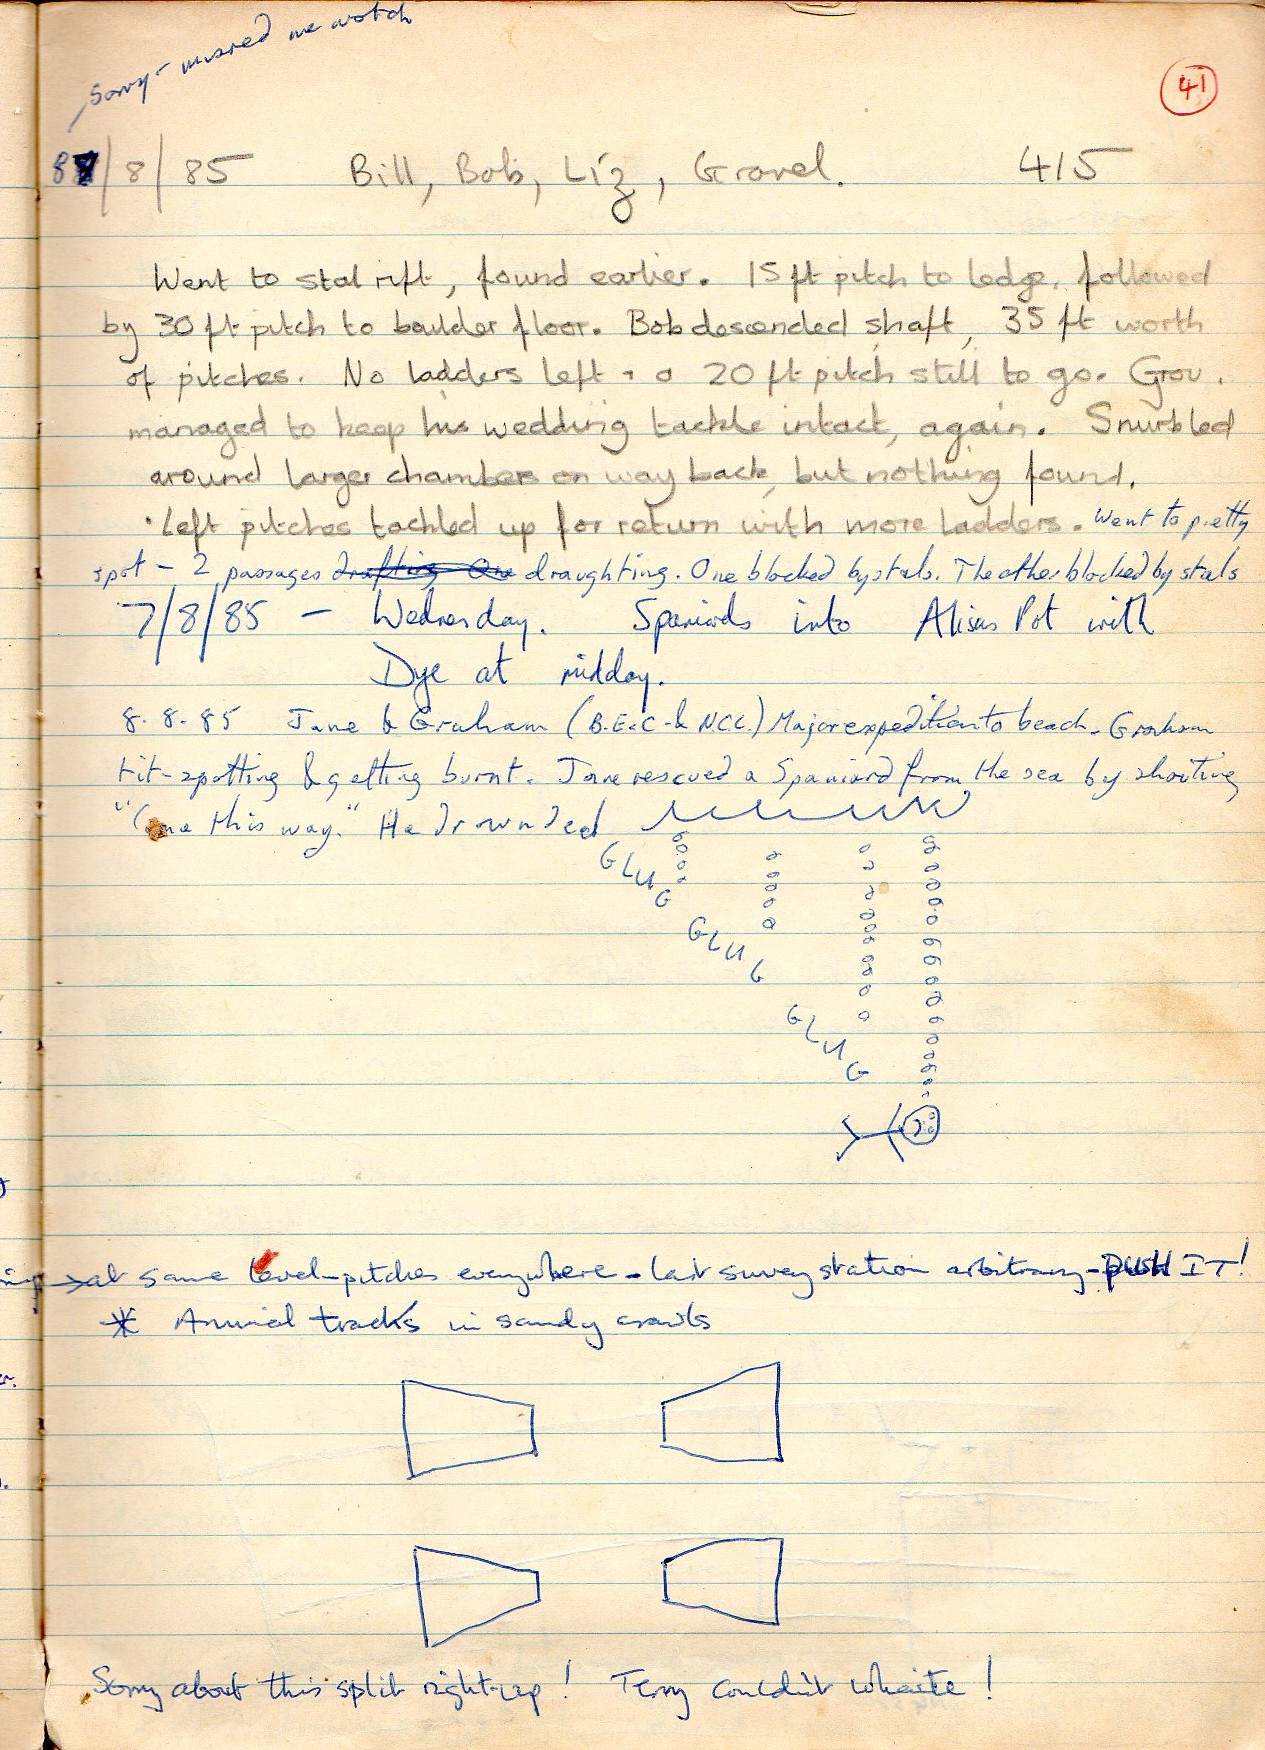 Sorry - misread me watch
41
8/8/85 Bill, Bob, Liz, Gravel. 415
Went to stal rift, found earlier. 15 ft pitch to ledge, followed
by 30 ft pitch to boulder floor. Bob descended shaft, 35 ft worth
of pitches. No ladders left + a 20 ft pitch still to go. Grav.
managed to keep his wedding tackle intact, again. Snurbled
around larger chambers on way back, but nothing found.
Left pitches tackled up for return with more ladders. Went to pretty
spot - 2 passages drafting One draughting. One blocked by stals. The other blocked by stals
7/8/85 - Wednesday. Spaniards into Alisas Pot with
Dye at midday.
8.8.85 Jane & Graham (B.E.C. & N.C.C.) Major expedition to beach. Graham
tit-spotting & getting burnt. Jane rescued a Spaniard from the sea by shouting
"Come this way." He drownded
GLUG
GLUG
GLUG
at same level - pitches everywhere - last survey station arbitrary - PUSH IT!
* Animal tracks in sandy crawls
Sorry about this split right-up! Terry couldn't whaite!